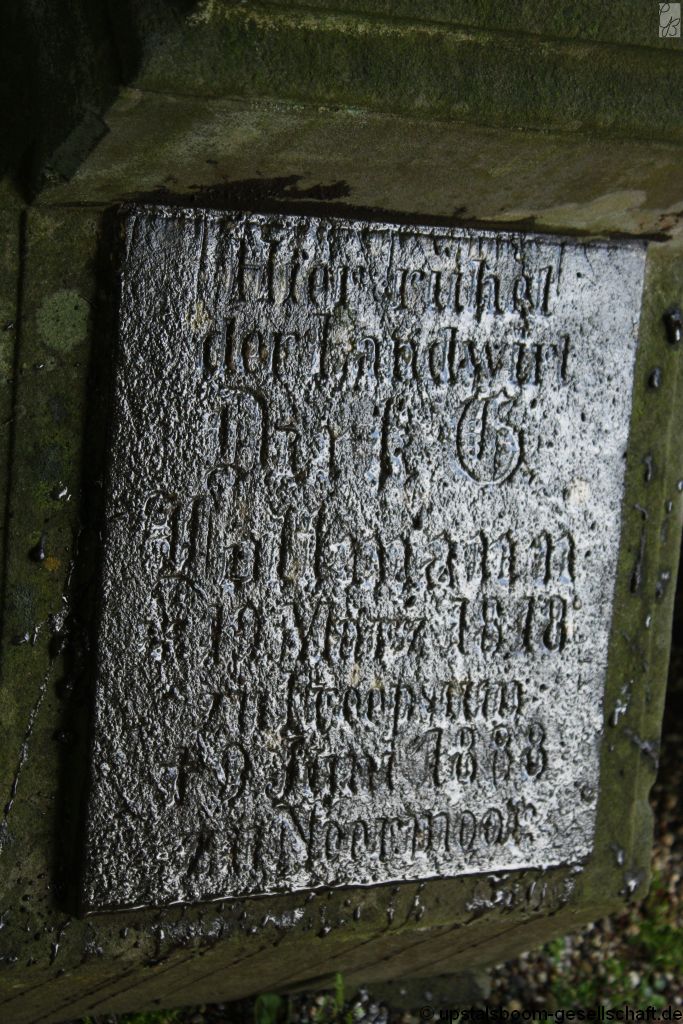 Hier rühet
der Landwirt
Dirk G.
Voltmann
* 19 März 1818
zu
† 9 Juni 1888
zu Neermoor
© upstalsboom-gesellschaft.de